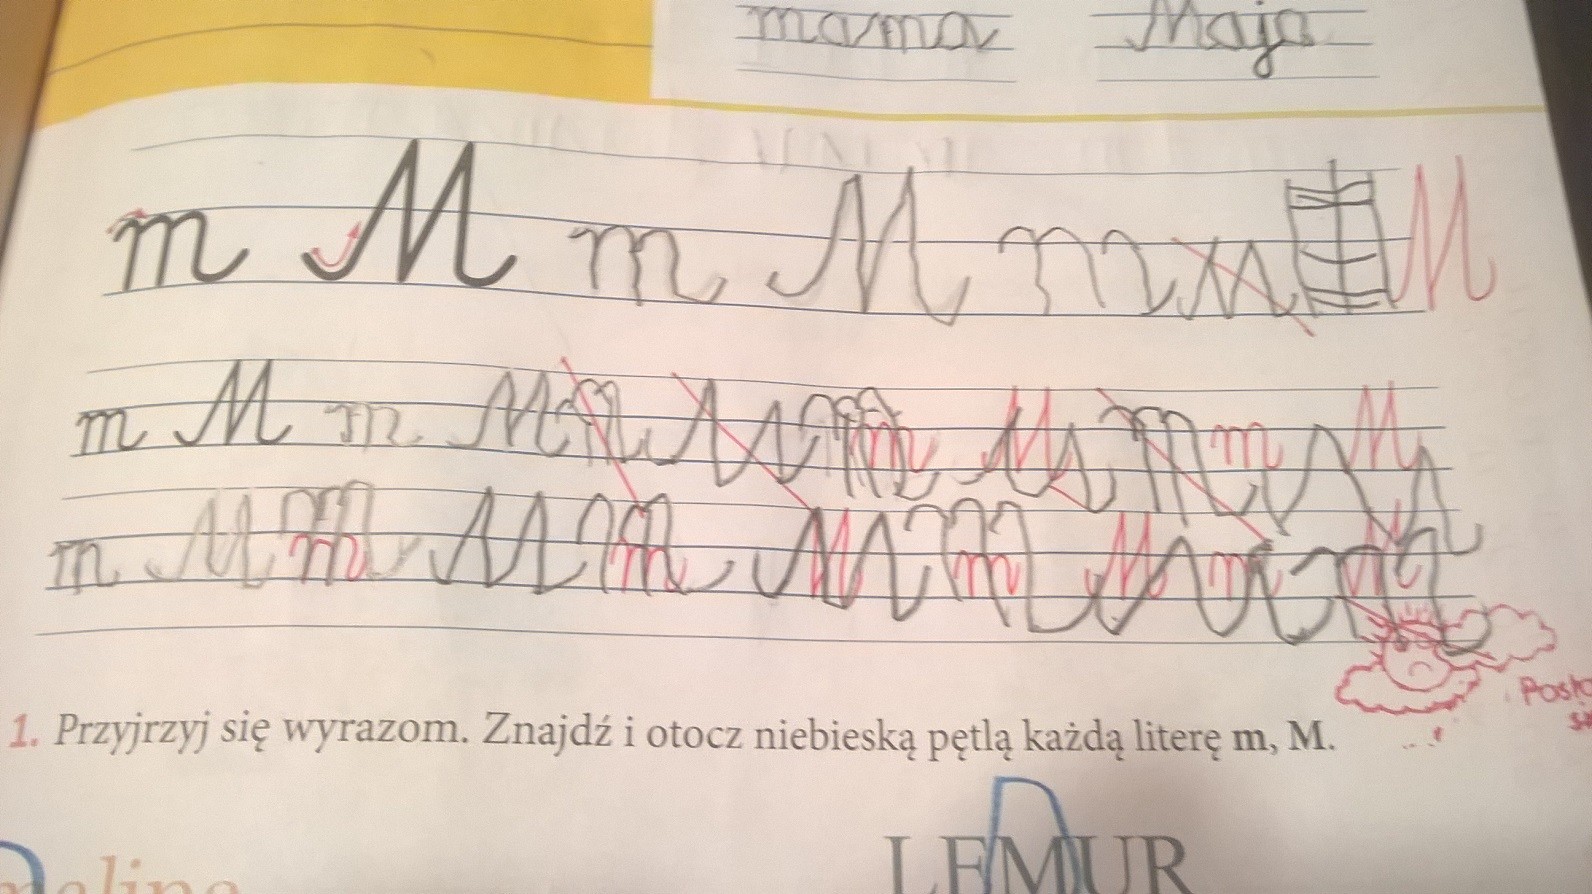 mama Maja
m M m M m m M
m M m M m M m M m m M
m M m M m M m M m M
Posta
1. Przyjrzyj się wyrazom. Znajdź i otocz niebieską pętlą każdą literę m, M.
LEMUR
malina